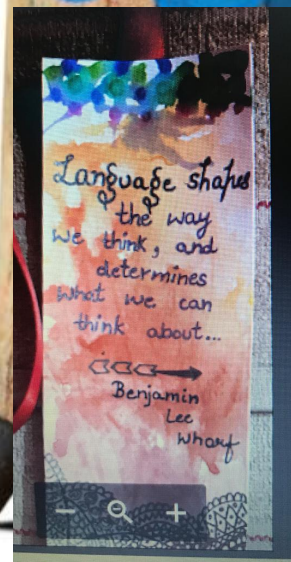 Language shapes
the way
we think, and
determines
what we can
think about...
Benjamin
Lee
Whorf